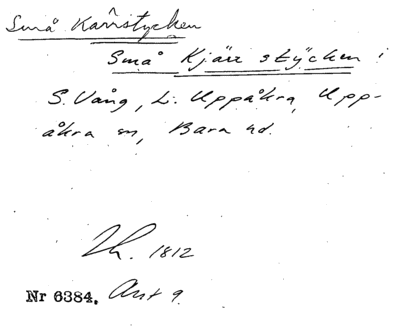 Små Kärrstycken
Små Kjärr stÿcken i
S. Vång, L. Uppåkra, Upp-
åkra sn, Bara hd.
1812
Nr 6384. Akt 9.